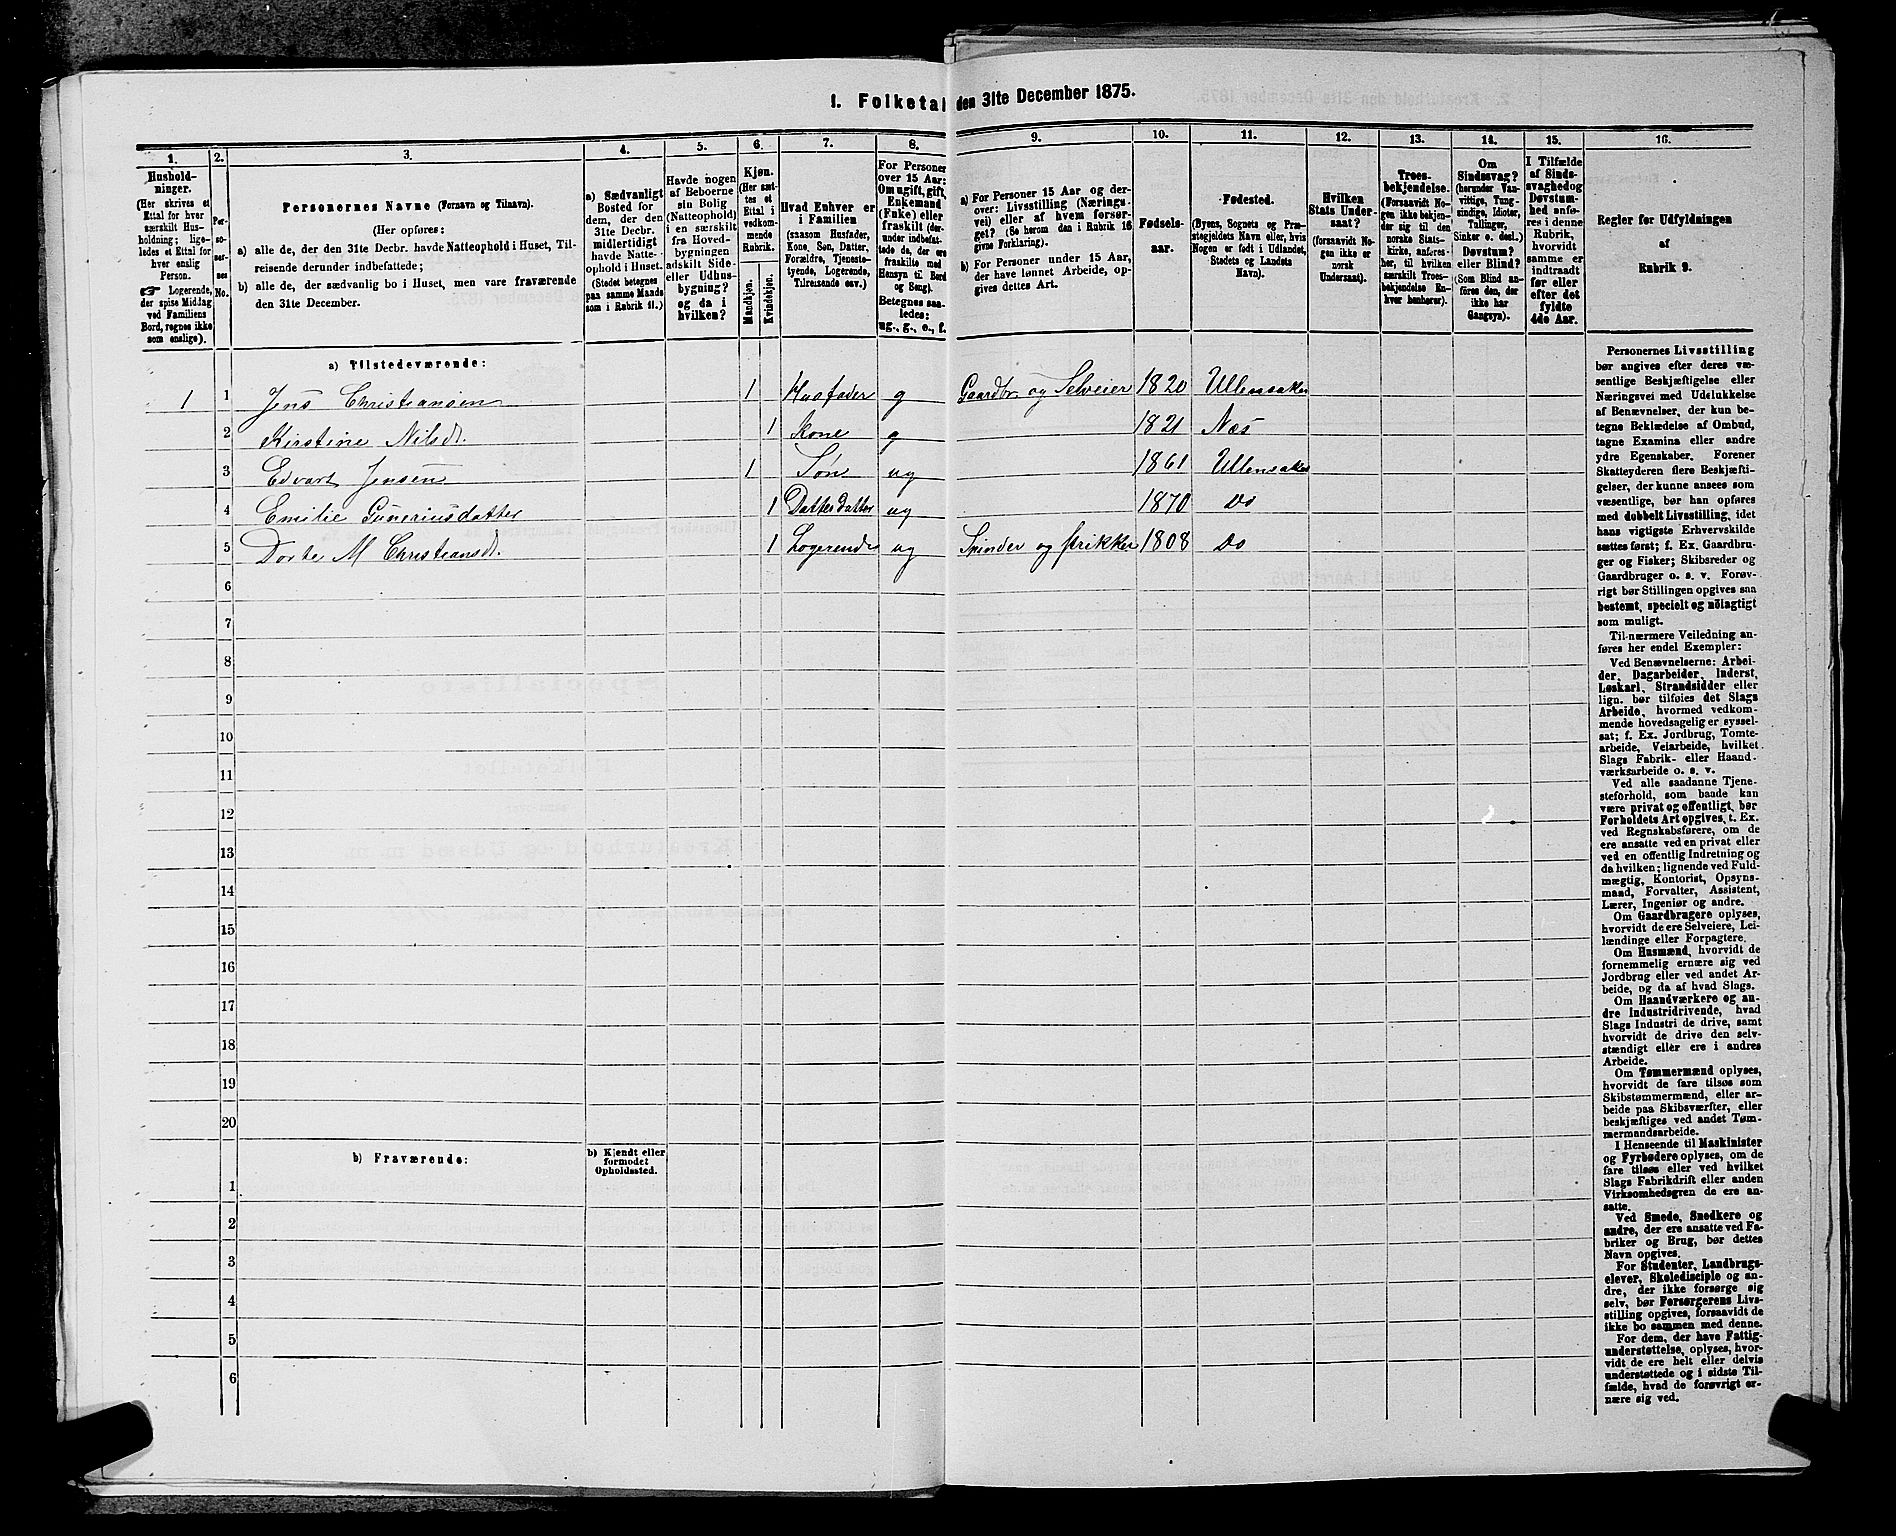 1. Folketal den 31te December 1875.
1. 2. 3. 4. 5. 6. 7. 8. 9. 10. 11. 12. 13. 14. 15. 16.
Hushold-
ninger.
(Her skrives et
Ettal for hver
særskilt Hus-
holdning; lige-
ledes et Ettal for
hver enslig
Person.
☞ Logerende,
der spise Middag
ved Familiens
Bord, regnes ikke
som enslige).
Per-
so-
ner-
nes
No.
Personernes Navne (Fornavn og Tilnavn).
(Her opføres:
a) alle de, der den 31te Decbr. havde Natteophold i Huset, Til-
reisende derunder indbefattede;
b) alle de, der sædvanlig bo i Huset, men vare fraværende
den 31te December.
a) Sædvanligt
Bosted for
dem, der den
31te Decbr.
midlertidigt
havde Natte-
ophold i Huset.
(Stedet betegnes
paa samme Maade
som i Rubrik 11.)
Havde nogen
af Beboerne
sin Bolig
(Natteophold)
i en særskilt
fra Hoved-
bygningen
adskilt Side-
eller Udhus-
bygning?
og da i
hvilken?
Kjøn.
(Her sæt-
tes et
Ettal i
vedkom-
mende
Rubrik.
Mandkjøn.
Kvindekjøn.
Hvad Enhver er
i Familien
(saasom Husfader,
Kone, Søn, Datter,
Forældre, Tjeneste-
tyende, Logerende,
Tilreisende osv.)
For Personer
over 15 Aar:
Om ugift, gift,
Enkemand
(Enke) eller
fraskilt (der-
under indbefat-
tede de, der ere
fraskilte med
Hensyn til Bord
og Seng).
Betegnes saa-
ledes:
ug., g., e., f.
a) For Personer 15 Aar og der-
over: Livsstilling (Nærings-
vei) eller af hvem forsør-
get? (Se herom den i Rubrik 16
givne Forklaring).
b) For Personer under 15 Aar,
der have lønnet Arbeide, op-
gives dettes Art.
Fødsels-
aar.
Fødested.
(Byens, Sognets og Præ-
stegjeldets Navn eller, hvis
Nogen er født i Udlandet,
Stedets og Landets
Navn).
Hvilken
Stats Under-
saat?
(forsaavidt No-
gen ikke er
norsk
Undersaat).
Troes-
bekjendelse.
(Forsaavidt No-
gen ikke bekjen-
der sig til den
norske Stats-
kirke, anføres
her, til hvilken
særskilt Troes-
bekjendelse En-
hver henhører).
Om
Sindssvag?
(herunder Van-
vittige, Tung-
sindige, Idioter,
Tullinger,
Sinker o. desl.)
Døvstum?
eller Blind?
(Som Blind an-
føres den, der
ikke har
Gangsyn).
I Tilfælde
af Sinds-
svaghed og
Døvstum-
hed anfø-
res i denne
Rubrik,
hvorvidt
samme er
indtraadt
før eller
efter det
fyldte
4de Aar.
Regler for Udfyldningen
af
Rubrik 9.
a) Tilstedeværende:
1 1 Jens Christiansen 1 Husfader g Gaardbr og Selveier 1820 Ullensaker
2 Kirstine Nilsdt. 1 Kone g 1821 Næs
3 Edvart Jensen 1 Søn ug 1861 Ullensaker
4 Emilie Guneriusdatter 1 Datterdatter ug 1870 Do
5 Dorte M Christiansdt. 1 Logerende ug Spinder og strikker 1808 Do
6
7
8
9
10
11
12
13
14
15
16
17
18
19
20
b) Fraværende:
b) Kjendt eller
formodet
Opholdssted.
1
2
3
4
5
6
Personernes Livsstilling
bør angives efter deres væ-
sentlige Beskjæftigelse eller
Næringsvei med Udelukkelse
af Benævnelser, der kun be-
tegne Beklædelse af Ombud,
tagne Examina eller andre
ydre Egenskaber. Forener
Skatteyderen flere Beskjæfti-
gelser, der kunne ansees som
væsentlige, bør han opføres
med dobbelt Livsstilling, idet
hans vigtigste Erhvervskilde
sættes først; f. Ex. Gaardbru-
ger og Fisker; Skibsreder og
Gaardbruger o. s. v. Forøv-
rigt bør Stillingen opgives saa
bestemt, specielt og nöiagtigt
som muligt.
Til nærmere Veiledning an-
føres her endel Exempler:
Ved Benævnelserne: Arbei-
der, Dagarbeider, Inderst,
Løskarl, Strandsidder eller
lign. bør tilføies det Slags
Arbeide, hvormed vedkom-
mende hovedsagelig er syssel-
sat; f. Ex. Jordbrug, Tomte-
arbeide, Veiarbeide, hvilket
Slags Fabrik- eller Haand-
værksarbeide o. s. v.
Ved alle saadanne Tjene-
steforhold, som baade kan
være privat og offentligt, bør
Forholdets Art opgives, t. Ex.
ved Regnskabsførere, om de
ere ansatte ved en privat eller
ved en offentlig Indretning og
da hvilken; lignende ved Fuld-
mægtig, Kontorist, Opsyns-
mand, Forvalter, Assistent,
Lærer, Ingeniør og andre.
Om Gaardbrugere oplyses,
hvorvidt de ere Selveiere, Lei-
lændinge eller Forpagtere.
Om Husmænd, hvorvidt de
fornemmelig ernære sig ved
Jordbrug eller ved andet Ar-
beide, og da af hvad Slags.
Om Haandværkere og an-
dre Industridrivende, hvad
Slags Industri de drive, samt
hvorvidt de drive den selv-
stændigt eller ere i andres
Arbeide.
Om Tømmermænd oplyses,
hvorvidt de fare tilsøs som
Skibstømmermænd, eller ar-
beide paa Skibsværfter, eller
beskjæftiges ved andet Tøm-
mermandsarbeide.
I Henseende til Maskinister
og Fyrbødere oplyses, om de
fare tilsøs eller ved hvilket
Slags Fabrikdrift eller anden
Virksomhedsgren de ere an-
satte.
Ved Smede, Snedkere og
andre, der ere ansatte ved Fa-
briker og Brug, bør dettes
Navn opgives.
For Studenter, Landbrugs-
elever, Skoledisciple og an-
dre, der ikke forsørge sig
selv, bør Forsørgerens Livs-
stilling opgives, forsaavidt de
ikke bo sammen med denne.
For dem, der have Fattig-
understøttelse, oplyses, hvor-
vidt de ere helt eller delvis
understøttede og i sidste Til-
fælde, hvad de forøvrigt er-
nære sig ved.